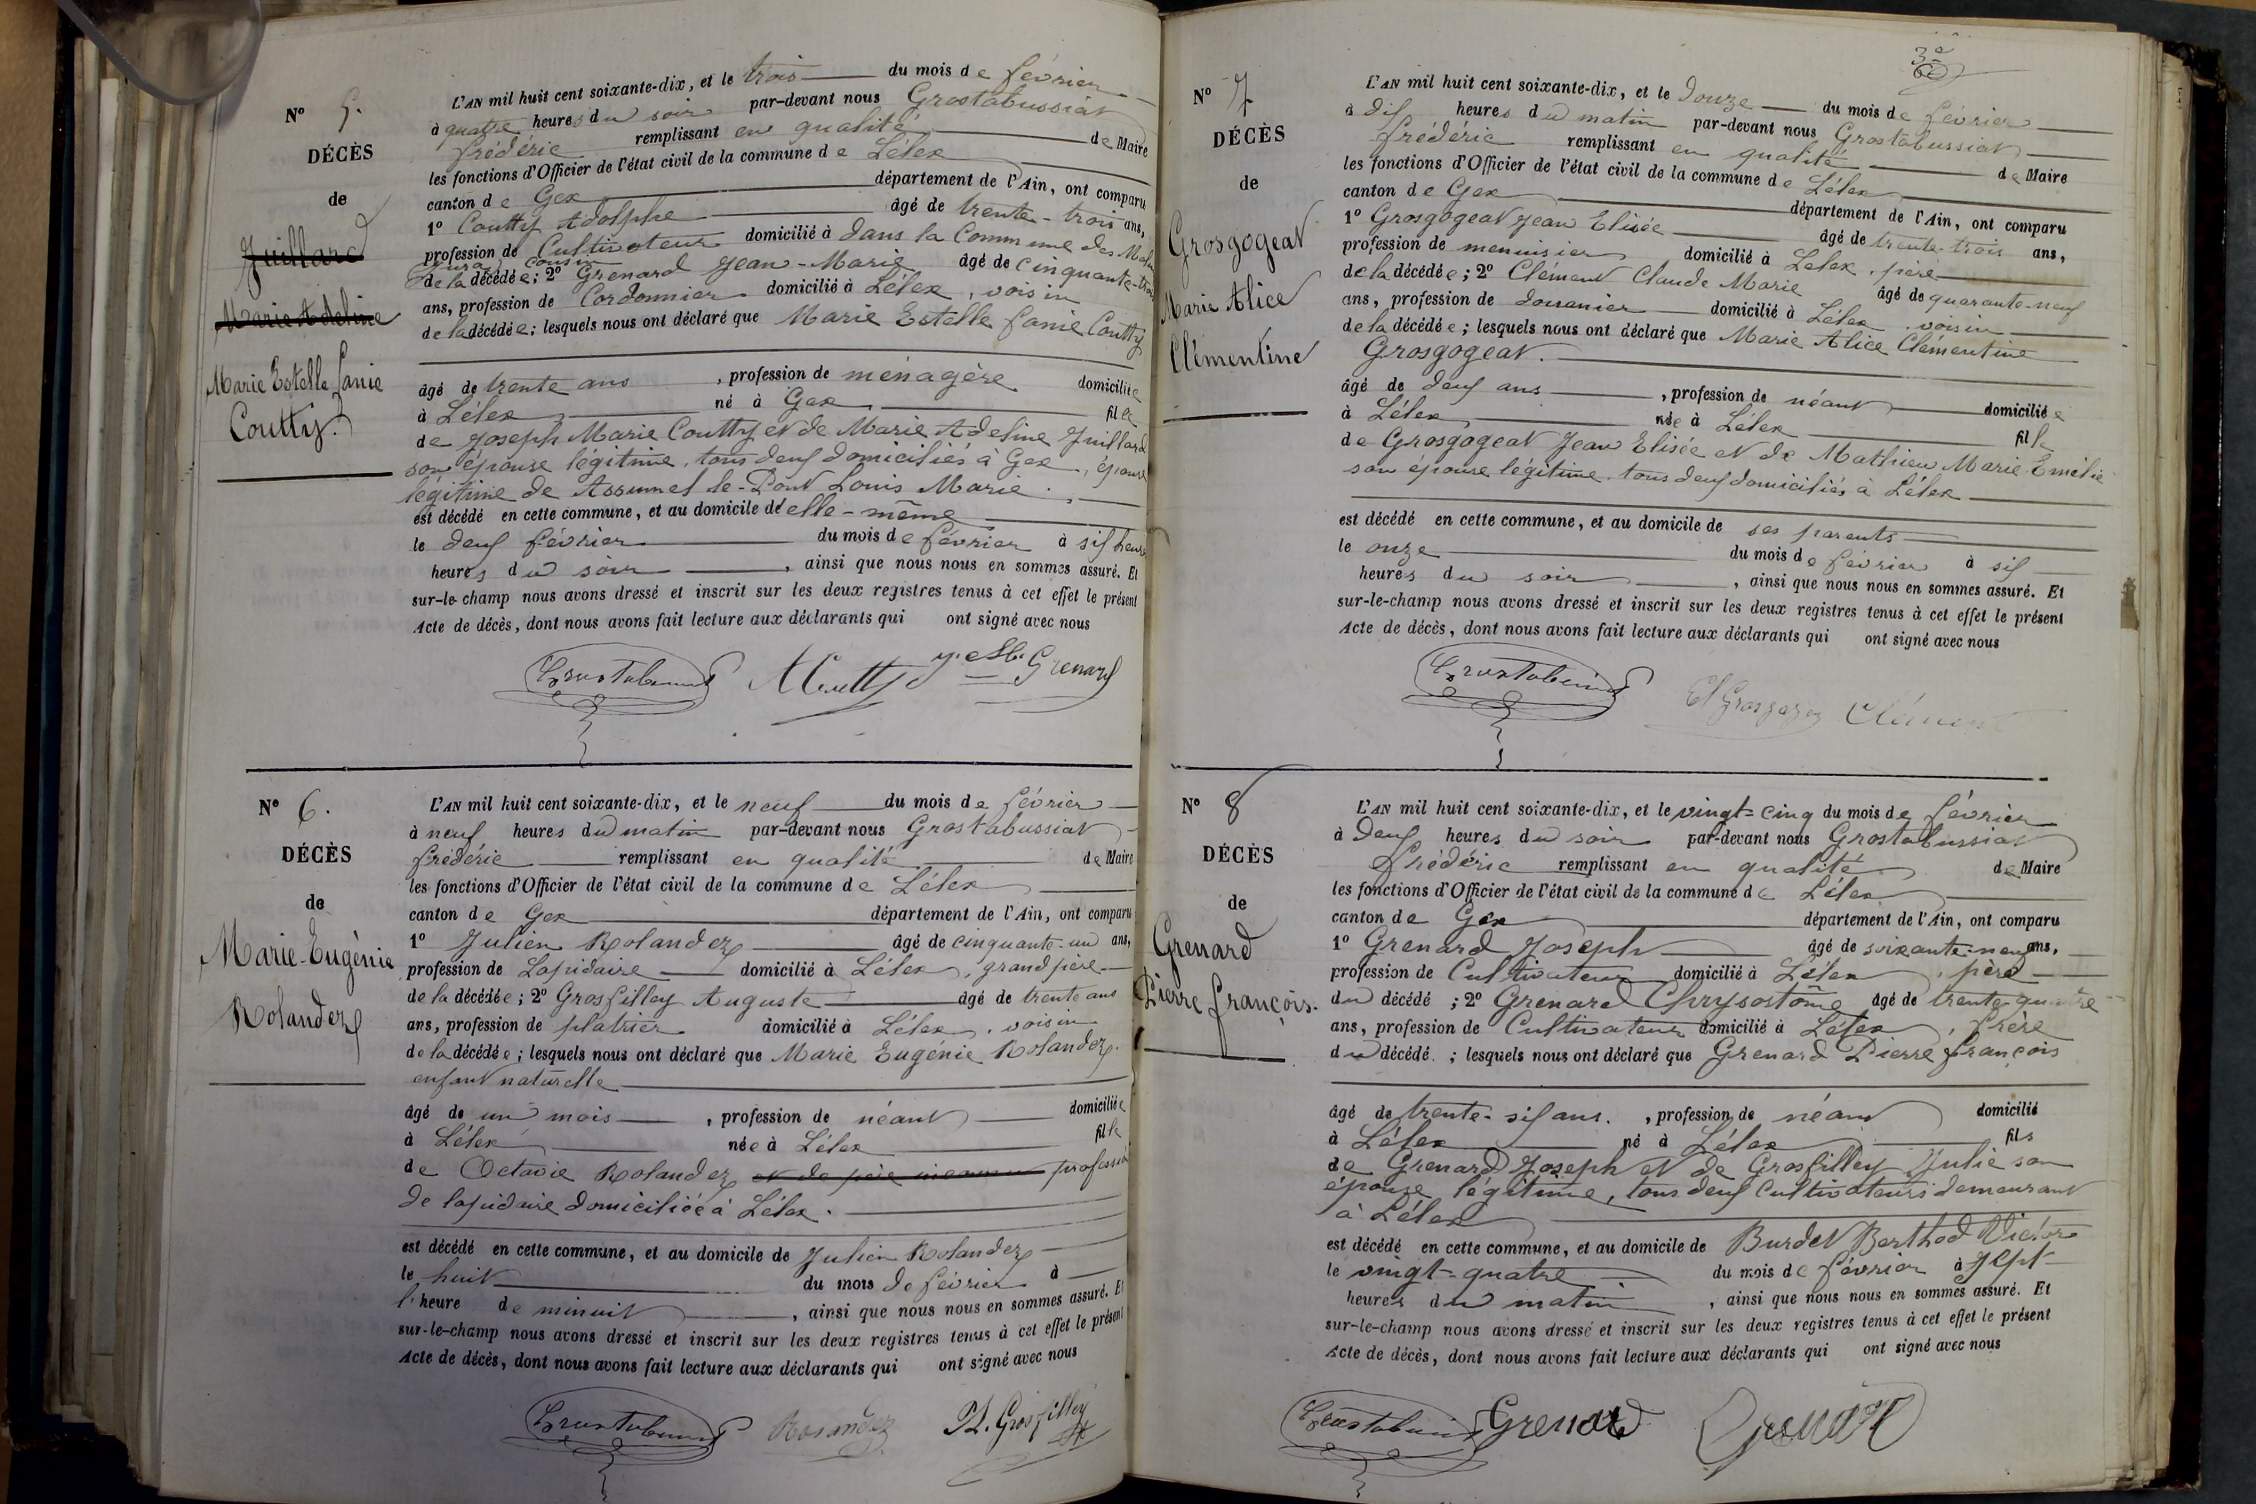 N° 5.
DÉCÈS
de
Juillard
Marie Adeline
Marie Estelle Fanie
Coutty.
L'AN mil huit cent soixante-dix, et le trois du mois de février
à quatre heures du soir par-devant nous Grostabussiat
frédéric remplissant en qualité de Maire
les fonctions d'Officier de l'état civil de la commune de Lélex
canton de Gex département de l'Ain, ont comparu
1° Coutty Adolphe âgé de trente-trois ans,
profession de Cultivateur domicilié à dans la Commune des
Jura cousin
de la décédée; 2° Grenard Jean-Marie âgé de cinquante-trois
ans, profession de Cordonnier domicilié à Lélex, voisin
de la décédée; lesquels nous ont déclaré que Marie Estelle fanie Coutty
âgé de trente ans, profession de ménagère domiciliée
à Lélex né à Gex fille
de Joseph Marie Coutty et de Marie Adeline Juillard
son épouse légitime, tous deux domiciliés à Gex, épouse
légitime de Louis Marie.
est décédé en cette commune, et au domicile d'elle-même
le deux février du mois de février à six heures
heures du soir, ainsi que nous nous en sommes assuré. Et
sur-le-champ nous avons dressé et inscrit sur les deux registres tenus à cet effet le présent
Acte de décès, dont nous avons fait lecture aux déclarants qui ont signé avec nous
Grostabussiat A Coutty Grenard
N° 6.
DÉCÈS
de
Marie-Eugénie
Rolandez
L'AN mil huit cent soixante-dix, et le neuf du mois de février
à neuf heures du matin par-devant nous Grostabussiat
frédéric remplissant en qualité de Maire
les fonctions d'Officier de l'état civil de la commune de Lélex
canton de Gex département de l'Ain, ont comparu
1° Julien Rolandez âgé de cinquante-un ans,
profession de Lapidaire domicilié à Lélex, grand père
de la décédée; 2° Grosfilley Auguste âgé de trente ans
ans, profession de platrier domicilié à Lélex, voisin
de la décédée; lesquels nous ont déclaré que Marie Eugénie Rolandez
enfant naturelle
âgé de un mois, profession de néant domiciliée
à Lélex née à Lélex fille
de Octavie Rolandez et de père inconnu profession
de lapidaire domiciliée à Lélex.
est décédé en cette commune, et au domicile de Julien Rolandez
le huit du mois de février à
l'heure de minuit, ainsi que nous nous en sommes assuré. Et
sur-le-champ nous avons dressé et inscrit sur les deux registres tenus à cet effet le présent
Acte de décès, dont nous avons fait lecture aux déclarants qui ont signé avec nous
Grostabussiat Rolandez A. Grosfilley
3e
N° 7
DÉCÈS
de
Grosgogeat
Marie Alice
Clémentine
L'AN mil huit cent soixante-dix, et le douze du mois de février
à dix heures du matin par-devant nous Grostabussiat
frédéric remplissant en qualité de Maire
les fonctions d'Officier de l'état civil de la commune de Lélex
canton de Gex département de l'Ain, ont comparu
1° Grosgogeat Jean Elisée âgé de trente-trois ans,
profession de menuisier domicilié à Lelex, père
de la décédée; 2° Clément Claude Marie âgé de quarante-neuf
ans, profession de douanier domicilié à Lélex, voisin
de la décédée; lesquels nous ont déclaré que Marie Alice Clémentine
Grosgogeat.
âgé de deux ans, profession de néant domiciliée
à Lélex née à Lélex fille
de Grosgogeat Jean Elisée et de Mathieu Marie Emélie
son épouse légitime, tous deux domiciliés à Lélex
est décédé en cette commune, et au domicile de ses parents
le onze du mois de février à six
heures du soir, ainsi que nous nous en sommes assuré. Et
sur-le-champ nous avons dressé et inscrit sur les deux registres tenus à cet effet le présent
Acte de décès, dont nous avons fait lecture aux déclarants qui ont signé avec nous
Grostabussiat El Grosgogeat Clément
N° 8
DÉCÈS
de
Grenard
Pierre françois.
L'AN mil huit cent soixante-dix, et le vingt-cinq du mois de février
à deux heures du soir par-devant nous Grostabussiat
frédéric remplissant en qualité de Maire
les fonctions d'Officier de l'état civil de la commune de Lélex
canton de Gex département de l'Ain, ont comparu
1° Grenard Joseph âgé de soixante-neuf ans,
profession de Cultivateur domicilié à Lélex, père
du décédé; 2° Grenard Chrysostôme âgé de trente-quatre
ans, profession de Cultivateur domicilié à Lélex, frère
du décédé; lesquels nous ont déclaré que Grenard Pierre françois
âgé de trente-six ans., profession de néant domicilié
à Lélex né à Lélex fils
de Grenard Joseph et de Grosfilley Julie son
épouse légitime, tous deux Cultivateurs demeurant
à Lélex
est décédé en cette commune, et au domicile de Burdet Berthod Victor
le vingt-quatre du mois de février à sept
heures du matin, ainsi que nous nous en sommes assuré. Et
sur-le-champ nous avons dressé et inscrit sur les deux registres tenus à cet effet le présent
Acte de décès, dont nous avons fait lecture aux déclarants qui ont signé avec nous
Grostabussiat Grenard Grenard